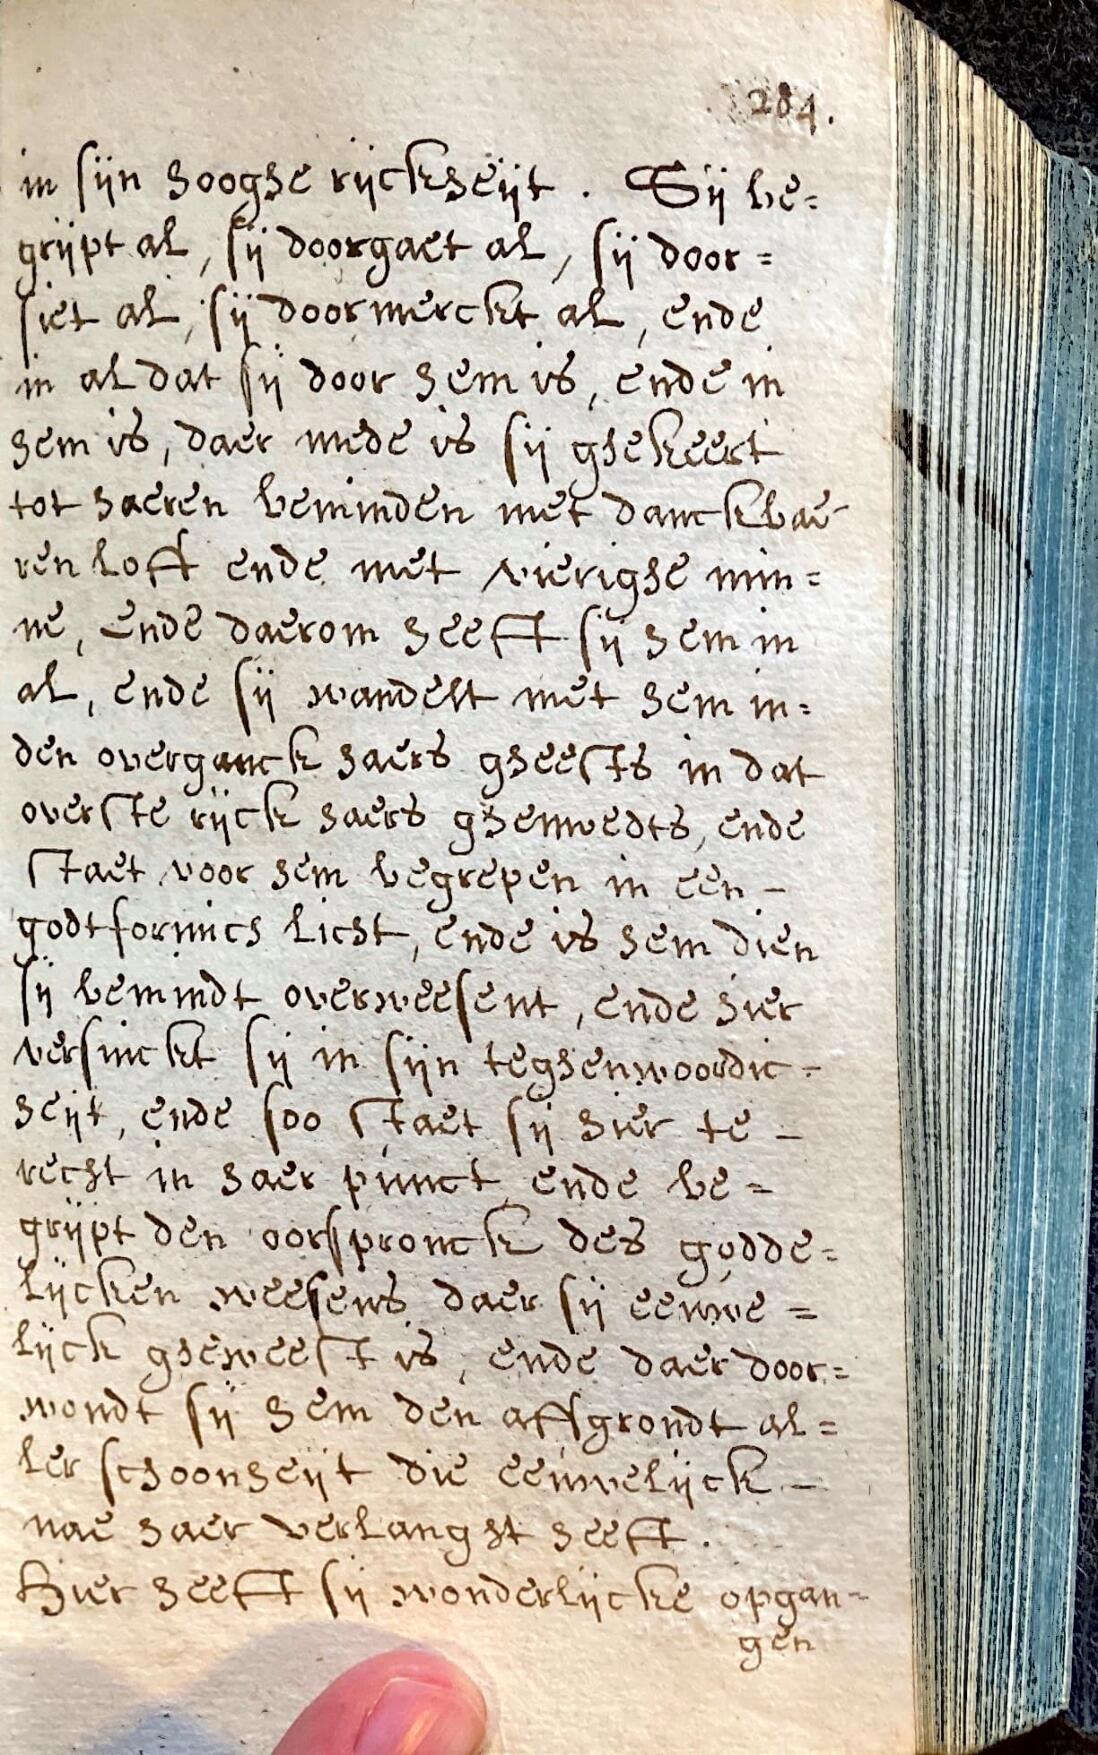 284.
in sijn hooghe rijckheijt. Sij be=
grijpt al, sij doorgaet al, sij door=
siet al, sij doormerckt al, ende
in al dat sij door hem is, ende in
hem is, daer mede is sij ghekeert
tot haeren beminden met danckbae-
ren loff ende met vierighe min=
ne, ende daerom heeft sij hem in
al, ende sij wandelt met hem in=
den overganck haers gheests in dat
overste rijck haers ghemoedts, ende
staet voor hem begrepen in een -
godtformich licht, ende is hem dien
sij bemindt overweesent, ende hier
versinckt sij in sijn teghenwoordic-
heijt, ende soo staet sij hier te -
recht in haer punct ende be=
grijpt den oorspronck des godde=
lijcken weesens daer sij eeuwe=
lijck gheweest is, ende daer door=
wondt sij hem den affgrondt al=
ler schoonheijt die eeuwelijck -
nae haer verlanght heeft.
Hier heeft sij wonderlijcke opgan=
gen